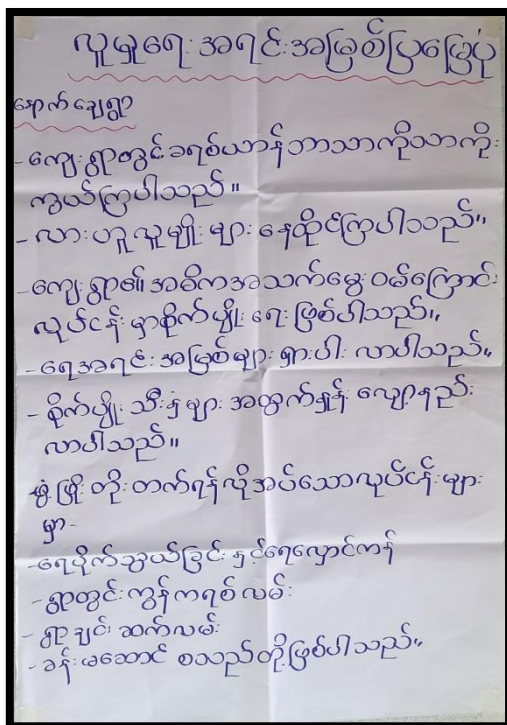 လူမှုရေး အရင်းအမြစ်ပြမြေပုံ
နောက်ချေရွာ
-ကျေးရွာတွင်ခရစ်ယာန်ဘာသာကိုသာကိုး
ကွယ်ကြပါသည်။
-လားဟူလူမျိုးများနေထိုင်ကြပါသည်။
-ကျေးရွာ၏အဓိကအသက်မွေးဝမ်းကြောင်း
လုပ်ငန်းမှာစိုက်ပျိုးရေးဖြစ်ပါသည်။
-ရေအရင်းအမြစ်များရှားပါးလာပါသည်။
-စိုက်ပျိုးသီးနှံများအထွက်နှုန်းလျော့နည်း
လာပါသည်။
ဖွံ့ဖြိုးတိုးတက်ရန်လိုအပ်သောလုပ်ငန်းများ
မှာ-
-ရေပိုက်သွယ်ခြင်းနှင့်ရေလှောင်ကန်
-ရွာတွင်းကွန်ကရစ်လမ်း
-ရွာချင်းဆက်လမ်း
-ခန်းမဆောင် စသည်တို့ဖြစ်ပါသည်။